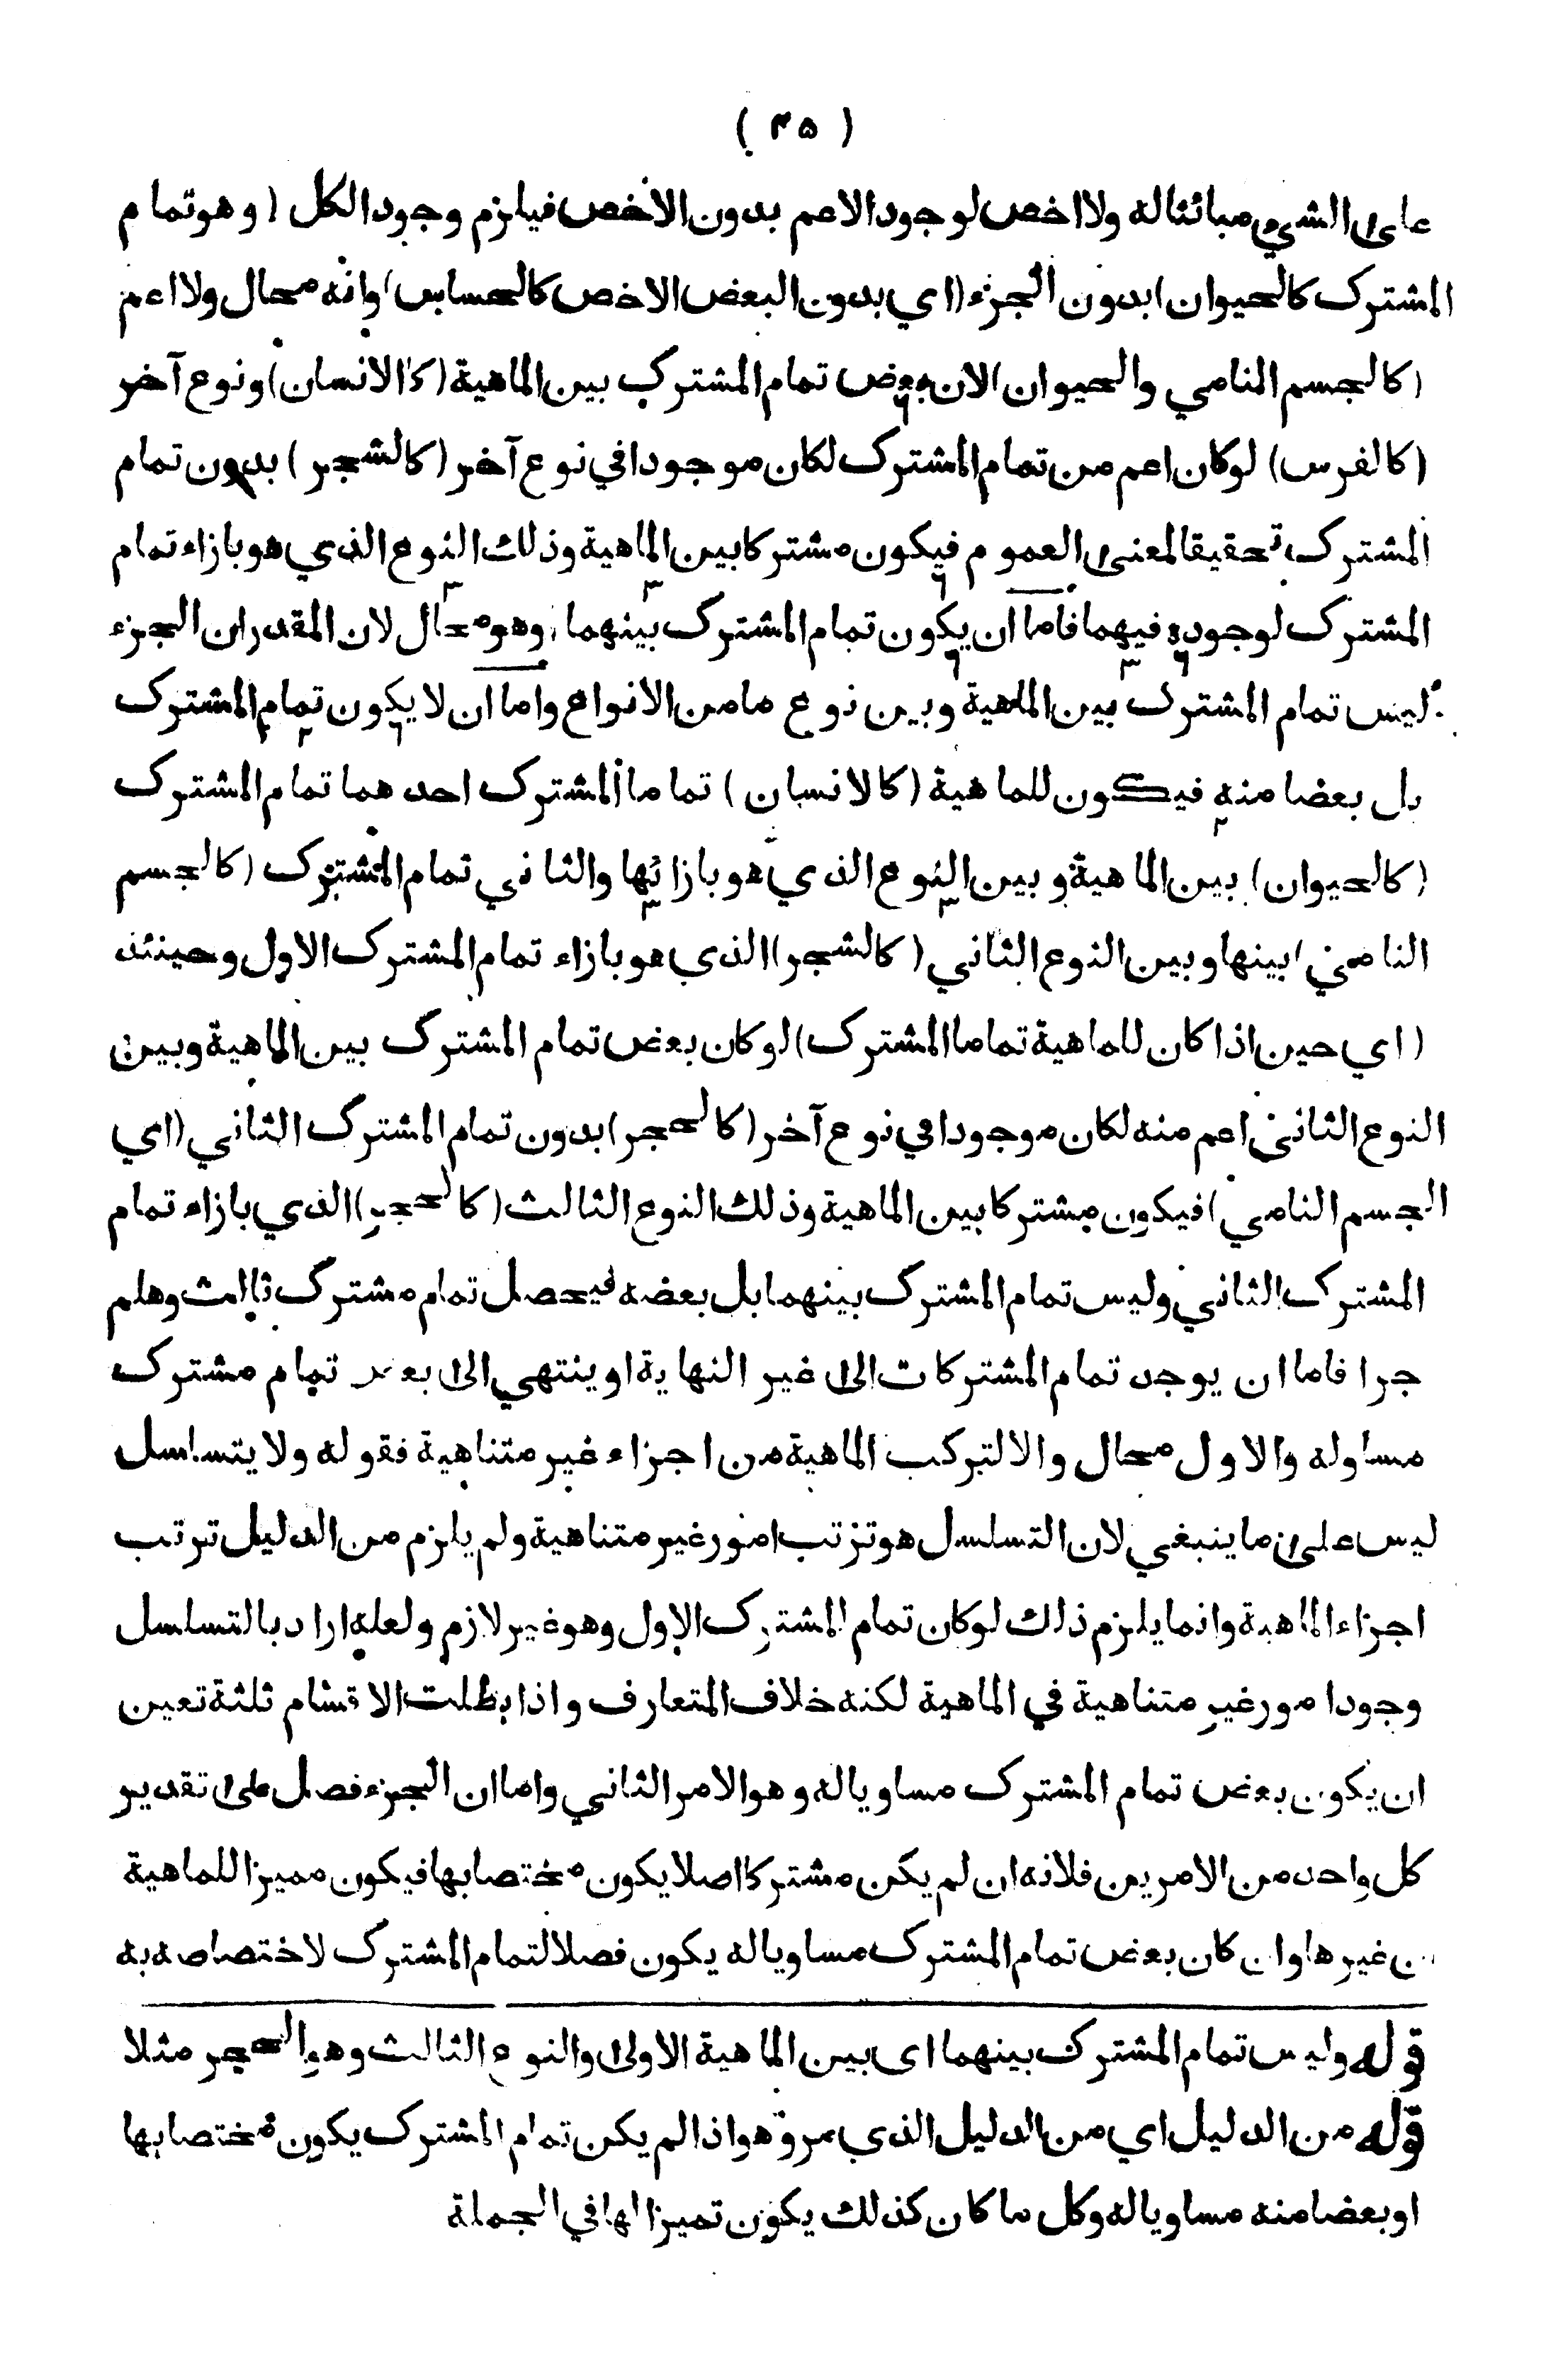 ( ٤٥ )
على الشيء مبائنا له ولا اخص لوجود الاعم بدون الاخص فيلزم وجود الكل ( وهو تمام
المشترك كالحيوان) بدون الجزء (اي بدون البعض الاخص كالحساس) وانه محال ولا اعم
(كالجسم النامي والحيوان) لان بعض تمام المشترك بين الماهية (كالانسان) ونوع آخر
(كالفرس) لوكان اعم من تمام المشترك لكان موجودا في نوع آخر (كالشجر) بدون تمام
المشترك تحقيقا لمعنى العموم فيكون مشتركا بين الماهية وذلك النوع الذي هو بازاء تمام
المشترك لوجوده فيهما فاما ان يكون تمام المشترك بينهما وهو محال لان المقدر ان الجزء
ليس تمام المشترك بين الماهية وبين نوع ما من الانواع واما ان لا يكون تمام المشترك
بل بعضا منه فيكون للماهية (كالانسان) تماما المشترك احدهما تمام المشترك
(كالحيوان) بين الماهية وبين النوع الذي هو بازائها والثاني تمام المشترك (كالجسم
النامي) بينها وبين النوع الثاني (كالشجر) الذي هو بازاء تمام المشترك الاول وحينئذ
(اي حين اذا كان للماهية تماما المشترك) لوكان بعض تمام المشترك بين الماهية وبين
النوع الثاني اعم منه لكان موجودا في نوع آخر (كالحجر) بدون تمام المشترك الثاني (اي
الجسم النامي) فيكون مشتركا بين الماهية وذلك النوع الثالث (كالحجر) الذي بازاء تمام
المشترك الثاني وليس تمام المشترك بينهما بل بعضه فيحصل تمام مشترك ثالث وهلم
جرا فاما ان يوجد تمام المشتركات الى غير النهاية او ينتهي الى بعض تمام مشترك
مساو له والاول محال والا لتركب الماهية من اجزاء غير متناهية فقوله ولا يتسلسل
ليس على ما ينبغي لان التسلسل هو ترتب امور غير متناهية ولم يلزم من الدليل ترتب
اجزاء الماهية وانما يلزم ذلك لوكان تمام المشترك الاول وهو غير لازم ولعله اراد بالتسلسل
وجود امور غير متناهية في الماهية لكنه خلاف المتعارف واذا بطلت الاقسام ثلثة تعين
ان يكون بعض تمام المشترك مساويا له وهو الامر الثاني واما ان الجزء فصل على تقدير
كل واحد من الامرين فلانه ان لم يكن مشتركا اصلا يكون مختصا بها فيكون مميزا للماهية
ن غيرها وان كان بعض تمام المشترك مساويا له يكون فصلا لتمام المشترك لاختصاصه به
قوله وليس تمام المشترك بينهما اى بين الماهية الاولى والنوع الثالث وهو الحجر مثلا
قوله من الدليل اي من الدليل الذي مر وهو اذا لم يكن تمام المشترك يكون مختصا بها
او بعضا منه مساويا له وكل ما كان كذلك يكون تميزا لها في الجملة